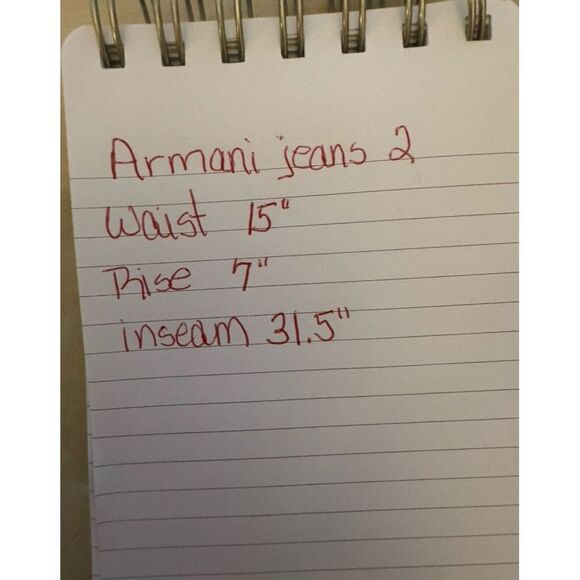 Armani jeans 2
Waist 15"
Rise 7"
inseam 31.5"